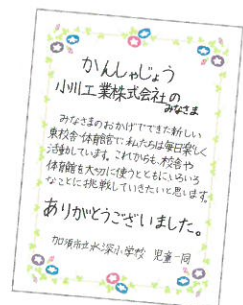 かんしゃじょう
小川工業株式会社の
みなさま
みなさまのおかげでできた新しい
東校舎・体育館で、私たちは毎日楽しく
活動しています。これからも、校舎や
体育館を大切に使うとともにいろいろ
なことに挑戦していきたいと思います。
ありがとうございました。
加須市立水深小学校 児童一同